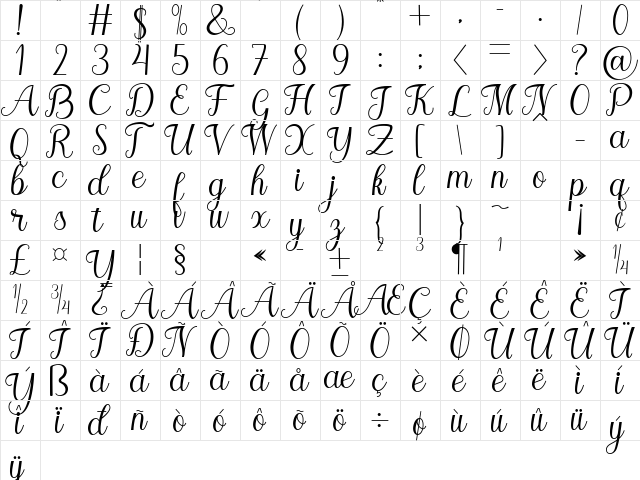 ! # $ % & ( ) * + , - . / 0
1 2 3 4 5 6 7 8 9 : ; < = > ? @
A B C D E F G H I J K L M N O P
Q R S T U V W X Y Z [ \ ] ^ _ a
b c d e f g h i j k l m n o p q
r s t u v w x y z { | } ~ ¡ ¢
£ ¤ ¥ ¦ § « ¯ ± ² ³ ¶ ¹ » ¼
½ ¾ ¿ À Á Â Ã Ä Å Æ Ç È É Ê Ë Ì
Í Î Ï Ð Ñ Ò Ó Ô Õ Ö × Ø Ù Ú Û Ü
Ý ß à á â ã ä å æ ç è é ê ë ì í
î ï đ ñ ò ó ô õ ö ÷ ø ù ú û ü ý
ÿ